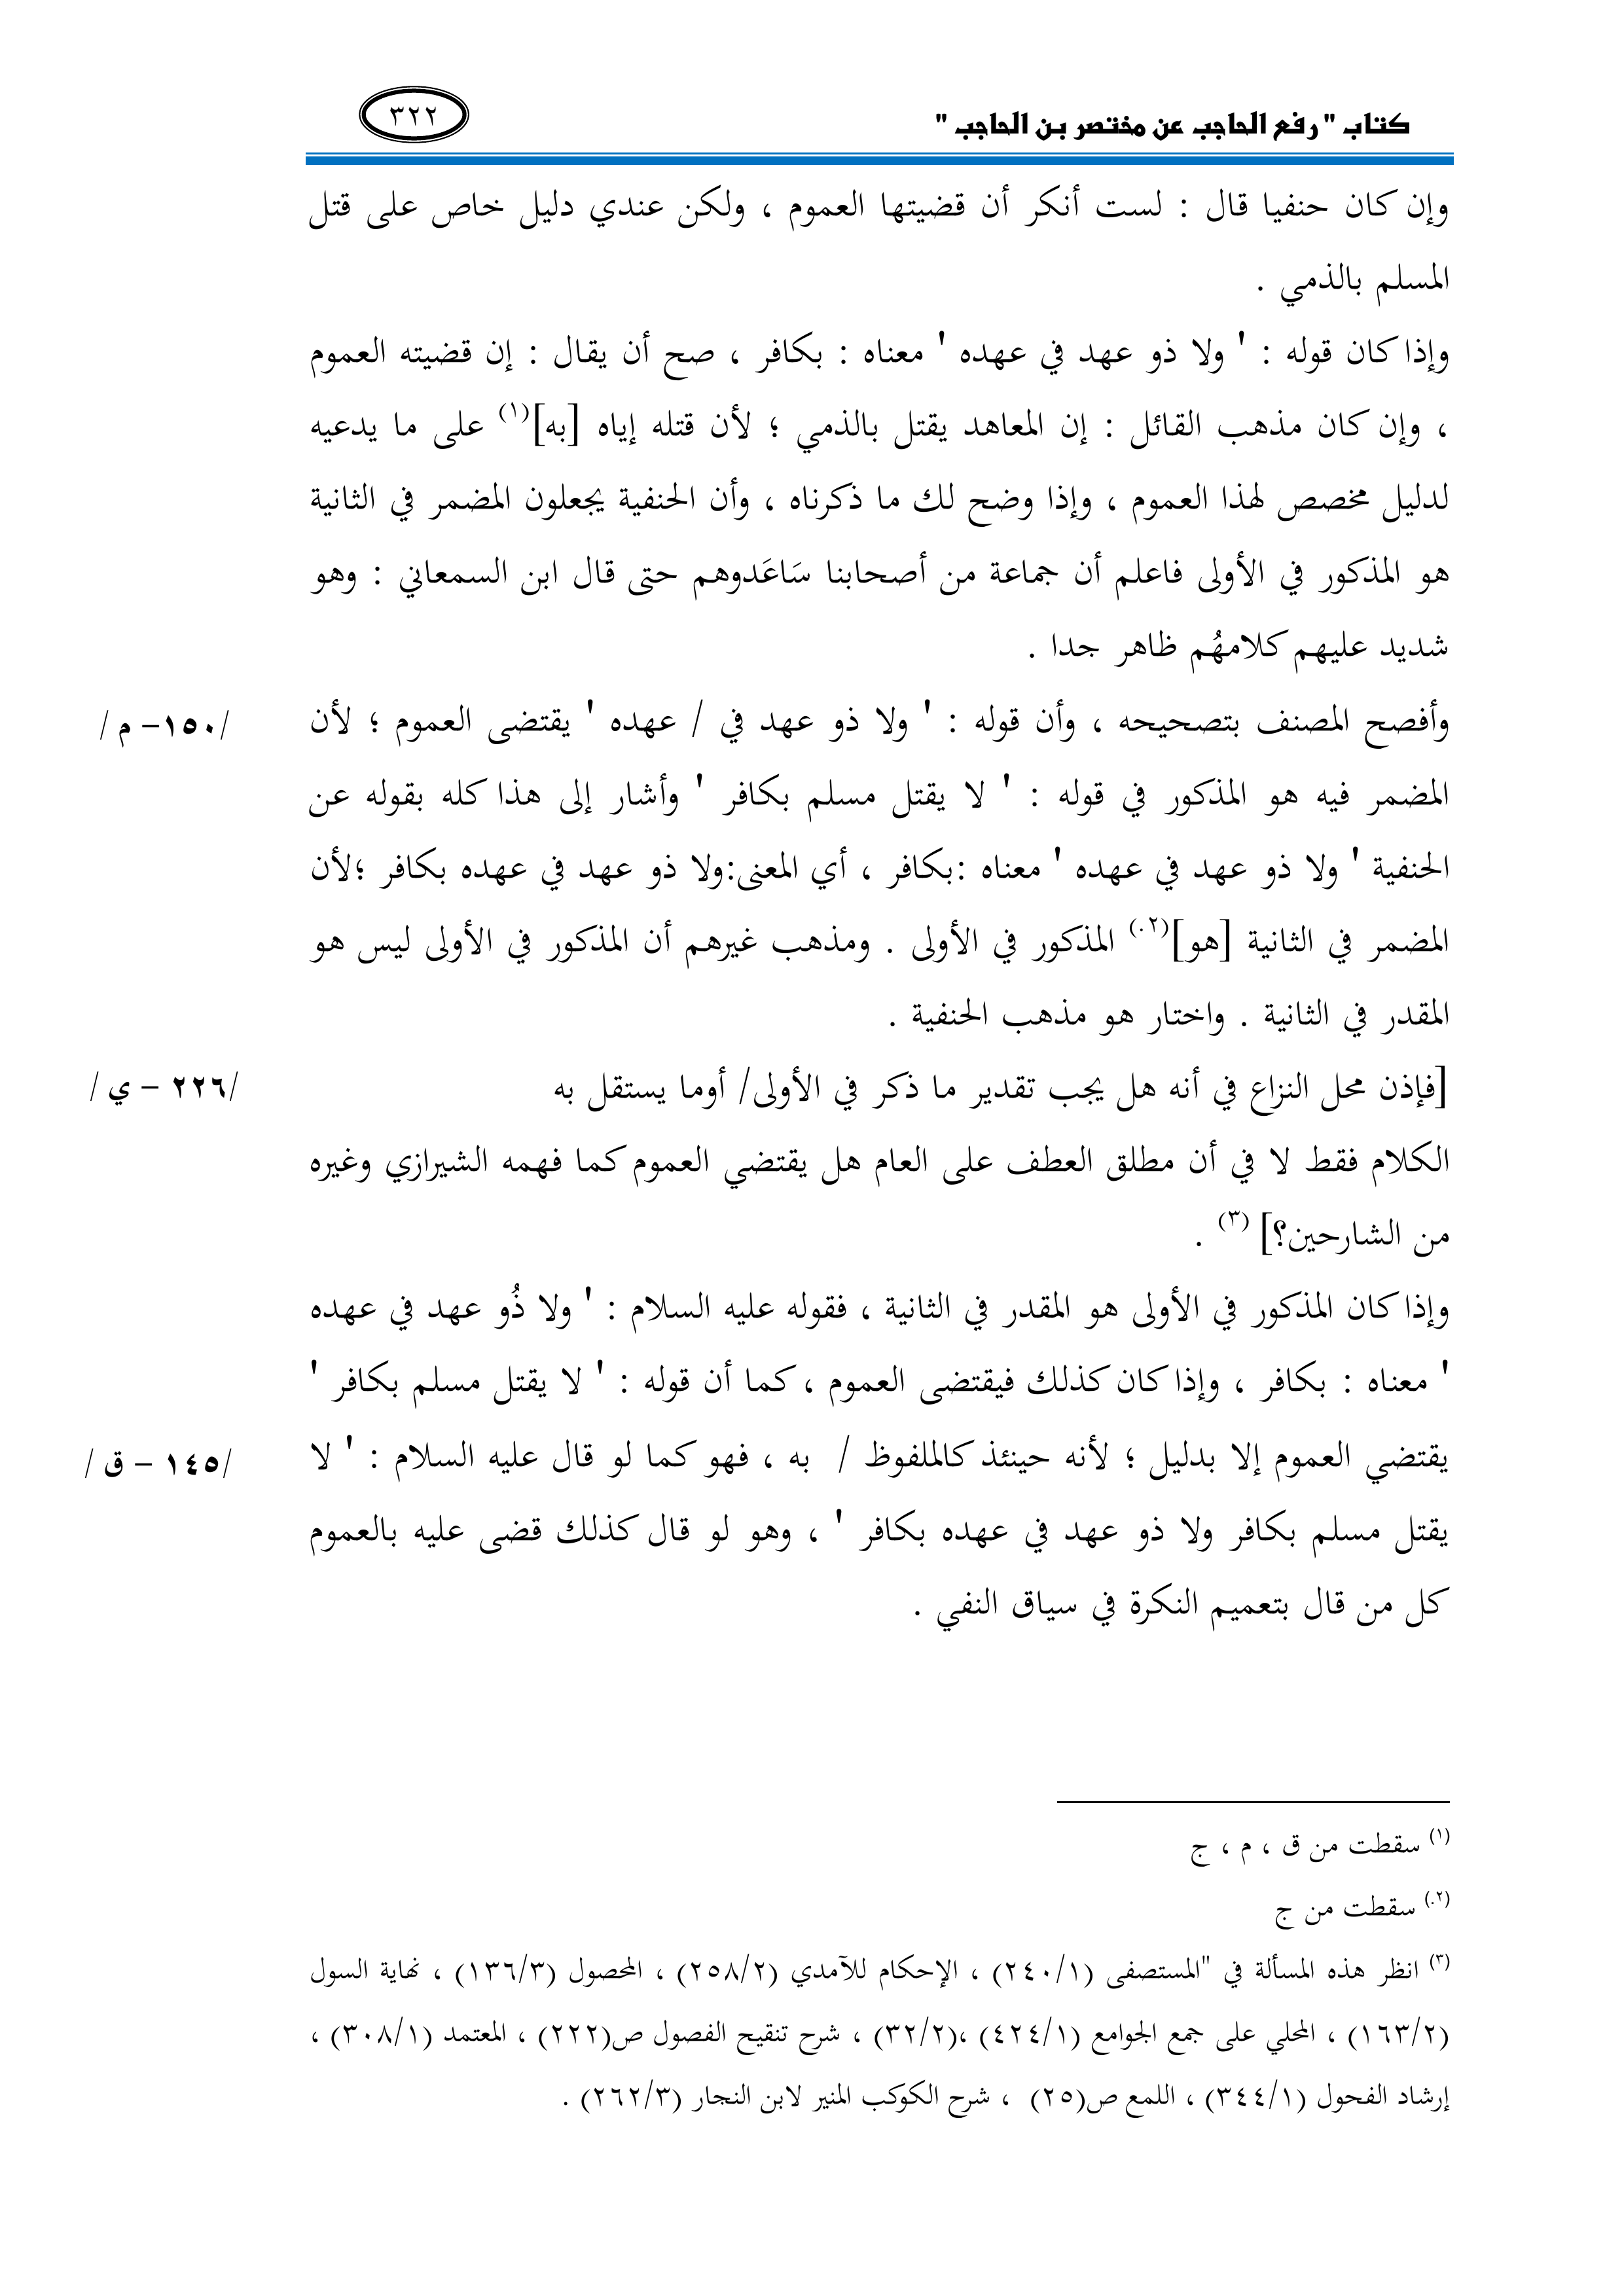 كتاب " رفع الحاجب عن مختصر بن الحاجب "
٣٢٢
وإن كان حنفيا قال : لست أنكر أن قضيتها العموم ، ولكن عندي دليل خاص على قتل
المسلم بالذمي .
وإذا كان قوله : ' ولا ذو عهد في عهده ' معناه : بكافر ، صح أن يقال : إن قضيته العموم
، وإن كان مذهب القائل : إن المعاهد يقتل بالذمي ؛ لأن قتله إياه [به](١) على ما يدعيه
لدليل مخصص لهذا العموم ، وإذا وضح لك ما ذكرناه ، وأن الحنفية يجعلون المضمر في الثانية
هو المذكور في الأولى فاعلم أن جماعة من أصحابنا سَاعَدوهم حتى قال ابن السمعاني : وهو
شديد عليهم كلامهُم ظاهر جدا .
وأفصح المصنف بتصحيحه ، وأن قوله : ' ولا ذو عهد في / عهده ' يقتضى العموم ؛ لأن
/١٥٠- م /
المضمر فيه هو المذكور في قوله : ' لا يقتل مسلم بكافر ' وأشار إلى هذا كله بقوله عن
الحنفية ' ولا ذو عهد في عهده ' معناه :بكافر ، أي المعنى:ولا ذو عهد في عهده بكافر ؛لأن
المضمر في الثانية [هو](٢.) المذكور في الأولى . ومذهب غيرهم أن المذكور في الأولى ليس هو
المقدر في الثانية . واختار هو مذهب الحنفية .
[فإذن محل النزاع في أنه هل يجب تقدير ما ذكر في الأولى/ أوما يستقل به
/٢٢٦ – ي /
الكلام فقط لا في أن مطلق العطف على العام هل يقتضي العموم كما فهمه الشيرازي وغيره
من الشارحين؟] (٣) .
وإذا كان المذكور في الأولى هو المقدر في الثانية ، فقوله عليه السلام : ' ولا ذُو عهد في عهده
' معناه : بكافر ، وإذا كان كذلك فيقتضى العموم ، كما أن قوله : ' لا يقتل مسلم بكافر '
يقتضي العموم إلا بدليل ؛ لأنه حينئذ كالملفوظ / به ، فهو كما لو قال عليه السلام : ' لا
/١٤٥ – ق /
يقتل مسلم بكافر ولا ذو عهد في عهده بكافر ' ، وهو لو قال كذلك قضى عليه بالعموم
كل من قال بتعميم النكرة في سياق النفي .
(١) سقطت من ق ، م ، ج
(٢.) سقطت من ج
(٣) انظر هذه المسألة في "المستصفى (٢٤٠/١) ، الإحكام للآمدي (٢٥٨/٢) ، المحصول (١٣٦/٣) ، نهاية السول
(١٦٣/٢) ، المحلي على جمع الجوامع (٤٢٤/١) ،(٣٢/٢) ، شرح تنقيح الفصول ص(٢٢٢) ، المعتمد (٣٠٨/١) ،
إرشاد الفحول (٣٤٤/١) ، اللمع ص(٢٥) ، شرح الكوكب المنير لابن النجار (٢٦٢/٣) .